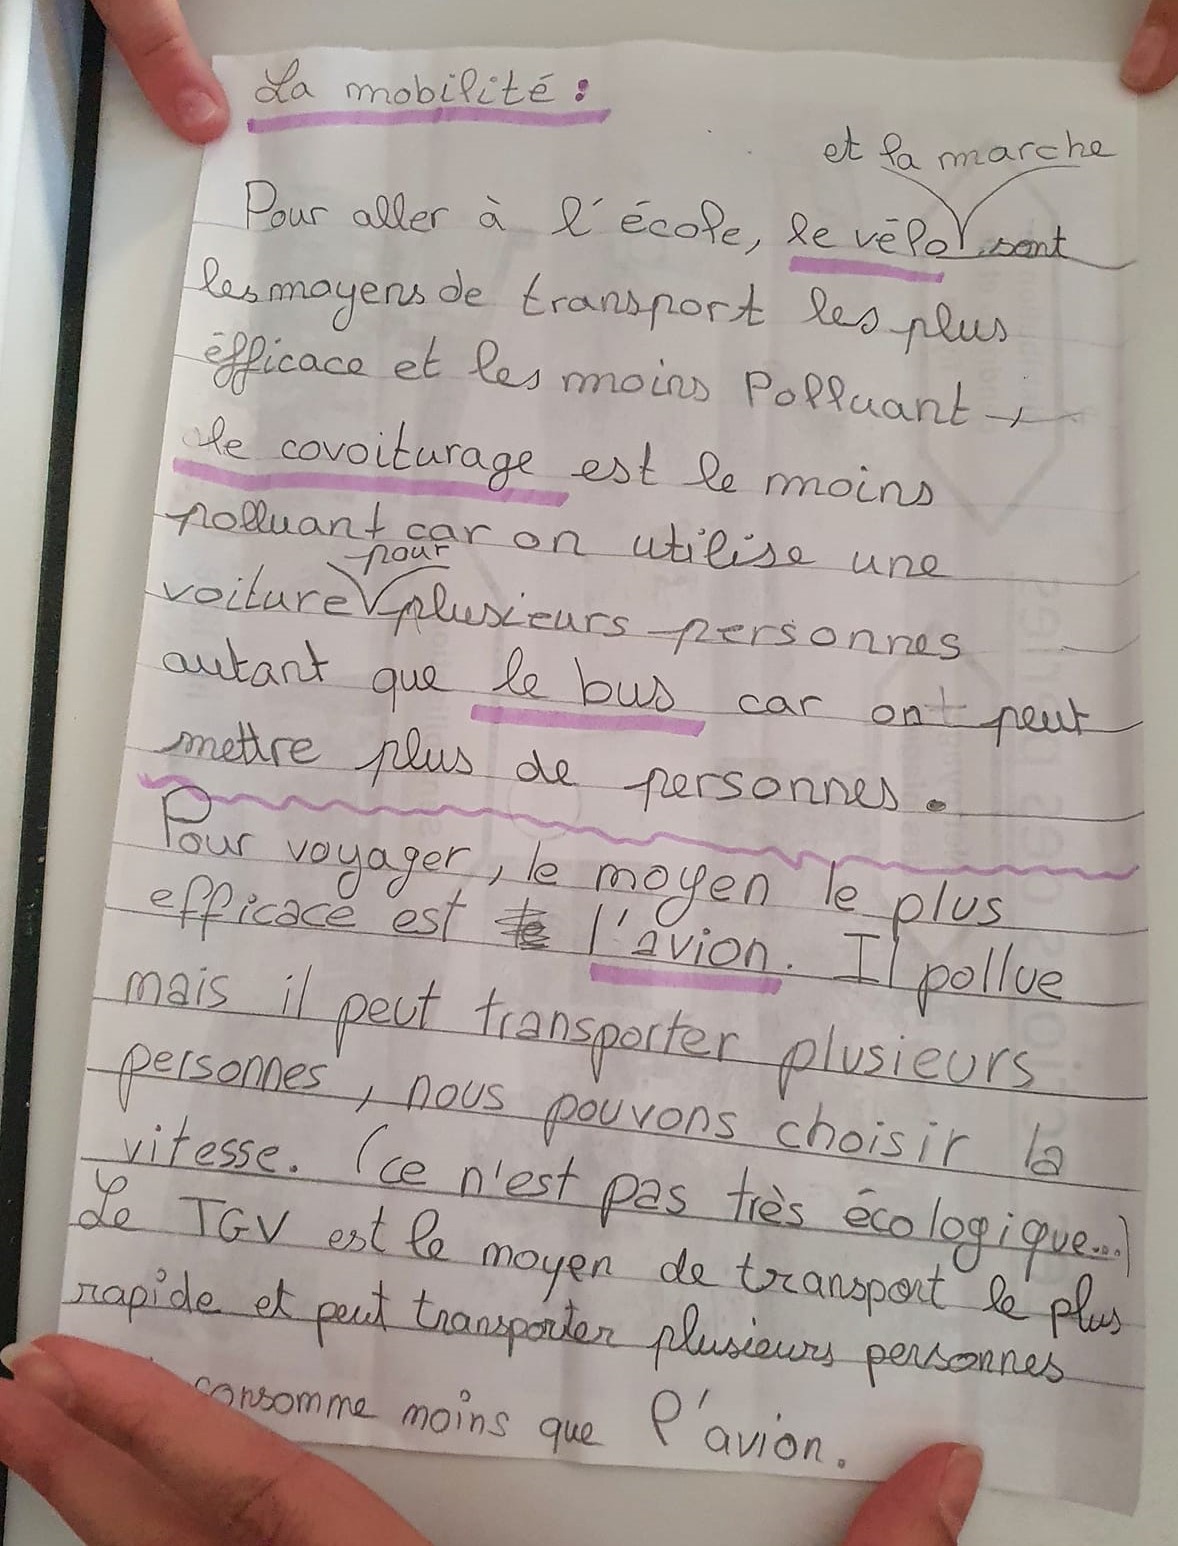 La mobilité :
et la marche
Pour aller à l'école, le vélo sont
les moyens de transport les plus
éfficace et les moins Polluant
le covoiturage est le moins
polluant car on utilise une
pour
voiture plusieurs personnes
autant que le bus car ont peut
mettre plus de personnes.
Pour voyager, le moyen le plus
efficace est l'avion. Il pollue
mais il peut transporter plusieurs
personnes, nous pouvons choisir la
vitesse. (ce n'est pas très écologique...)
Le TGV est le moyen de transport le plus
rapide et peut transporter plusieurs personnes
consomme moins que l'avion.